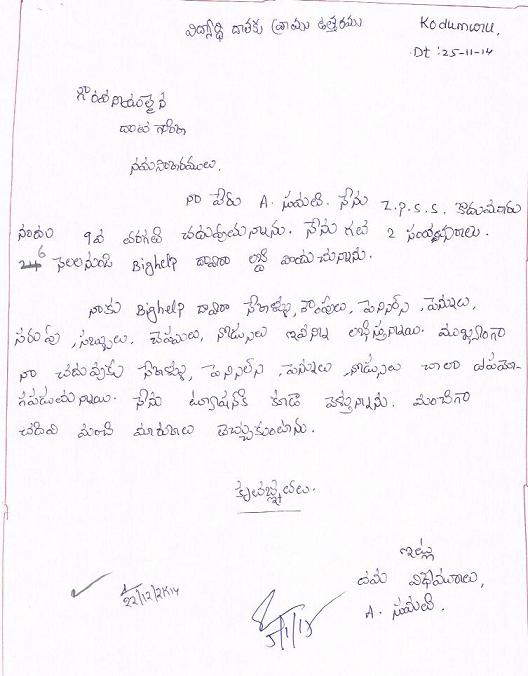 విద్యార్థి దాతకు వ్రాయు ఉత్తరము
Kodumuru,
Dt : 25-11-14
గౌరవనీయులైన
దాత గారికి
నమస్కారములు.
నా పేరు A. సుమతి. నేను Z.P.S.S. కొడుమూరు
నందు 9వ తరగతి చదువుచున్నాను. నేను గత 2 సంవత్సరాల
6 నెలలనుండి Bighelp ద్వారా లబ్ది పొందుచున్నాను.
నాకు Bighelp ద్వారా పేనాళ్ళు, పెన్సిల్స్, పెన్నులు,
సరుపు, సబ్బులు, చెప్పులు, నోట్సులు ఇవన్ని లభిస్తున్నాయి. ముఖ్యంగా
నా చదువుకు పెన్సిల్స్, పెన్నులు, నోట్సులు చాలా ఉపయో-
గపడుచున్నాయి. నేను ట్యూషన్‌కి కూడా వెళ్తున్నాను. మంచిగా
చదివి మంచి మార్కులు తెచ్చుకుంటాను.
కృతజ్ఞతలు.
ఇట్లు
తమ విధేయురాలు,
A. సుమతి.
22/12/2K14
5/1/15